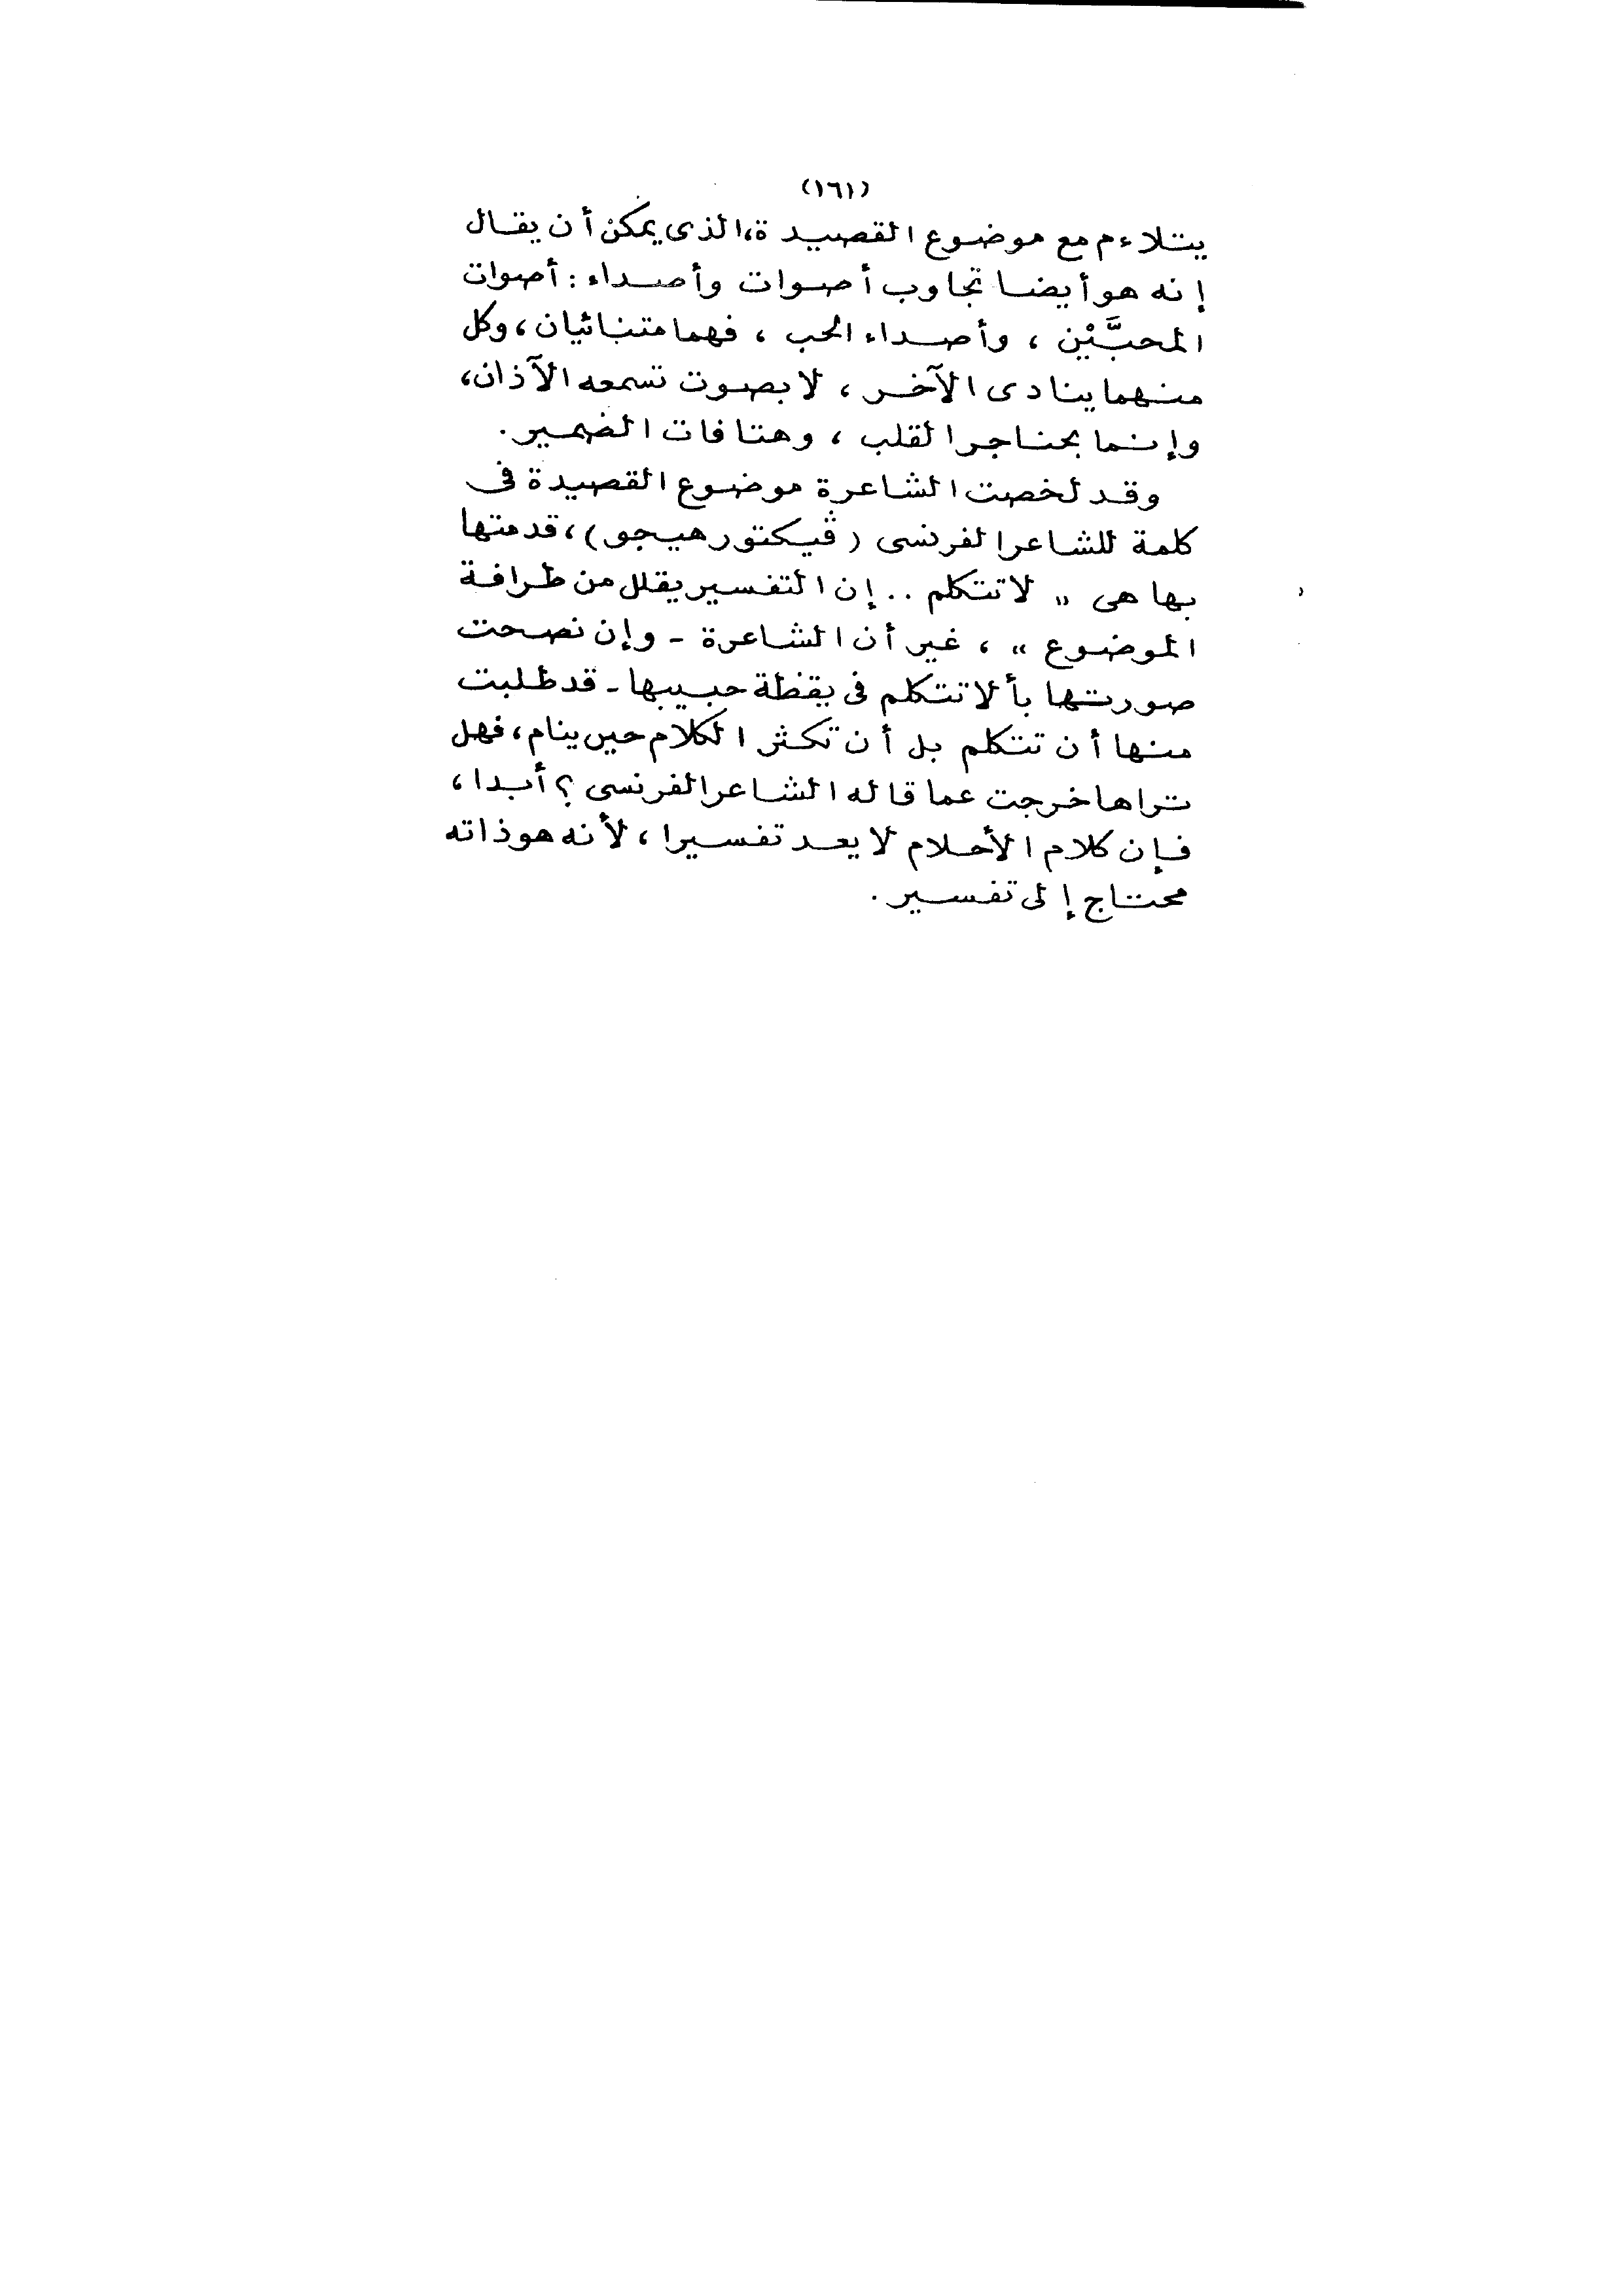 (١٦١)
يتلاءم مع موضوع القصيدة، الذى يمكن أن يقال
إنه هو أيضا تجاوب أصوات وأصداء : أصوات
المحبَّيْن ، وأصداء الحب ، فهما متنائيان ، وكل
منهما ينادى الآخر ، لا بصوت تسمعه الآذان،
وإنما بحناجر القلب ، وهتافات الضمير .
وقد لخصت الشاعرة موضوع القصيدة فى
كلمة للشاعر الفرنسى ( ڤيكتور هيجو ) ، قدمتها
بها هى „ لا تتكلم .. إن التفسير يقلل من طرافة
الموضوع “ ، غير أن الشاعرة - وإن نصحت
صورتها بألا تتكلم فى يقظة حبيبها - قد طلبت
منها أن تتكلم بل أن تكثر الكلام حين ينام ، فهل
تراها خرجت عما قاله الشاعر الفرنسى ؟ أبدا ،
فإن كلام الأحلام لا يعد تفسيرا ، لأنه هو ذاته
محتاج إلى تفسير .